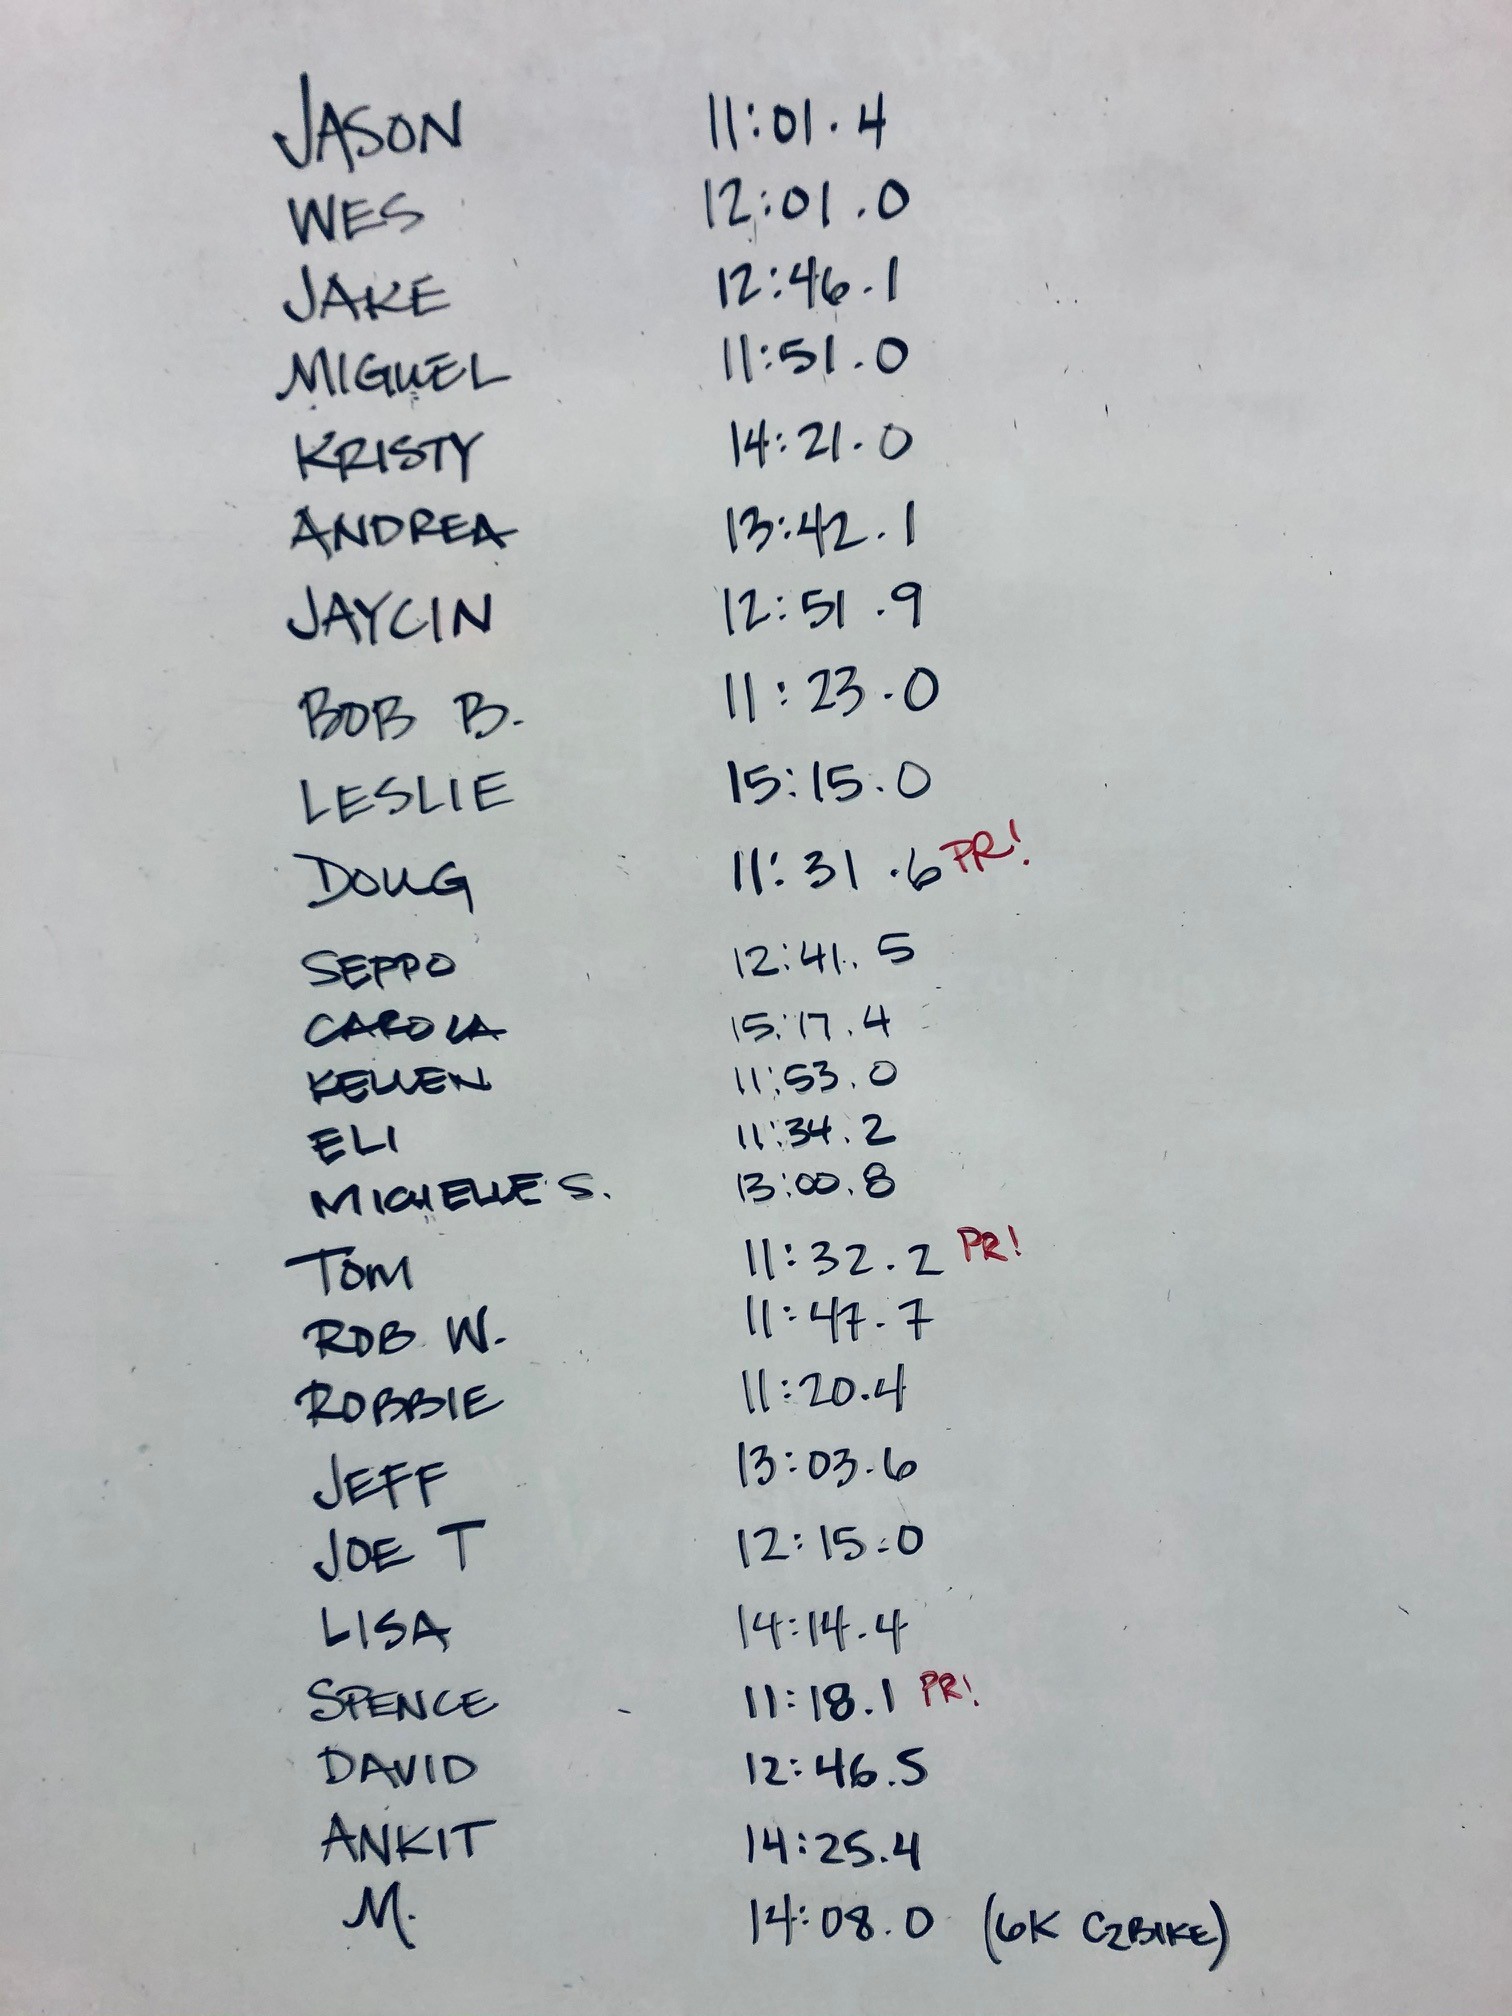 JASON 11:01.4
WES 12:01.0
JAKE 12:46.1
MIGUEL 11:51.0
KRISTY 14:21.0
ANDREA 13:42.1
JAYCIN 12:51.9
BOB B. 11:23.0
LESLIE 15:15.0
DOUG 11:31.6 PR!
SEPPO 12:41.5
CAROLA 15:17.4
KELLEN 11:53.0
ELI 11:34.2
MICHELLE S. 13:00.8
TOM 11:32.2 PR!
ROB W. 11:47.7
ROBBIE 11:20.4
JEFF 13:03.6
JOE T 12:15.0
LISA 14:14.4
SPENCE 11:18.1 PR!
DAVID 12:46.5
ANKIT 14:25.4
M. 14:08.0 (6K C2BIKE)